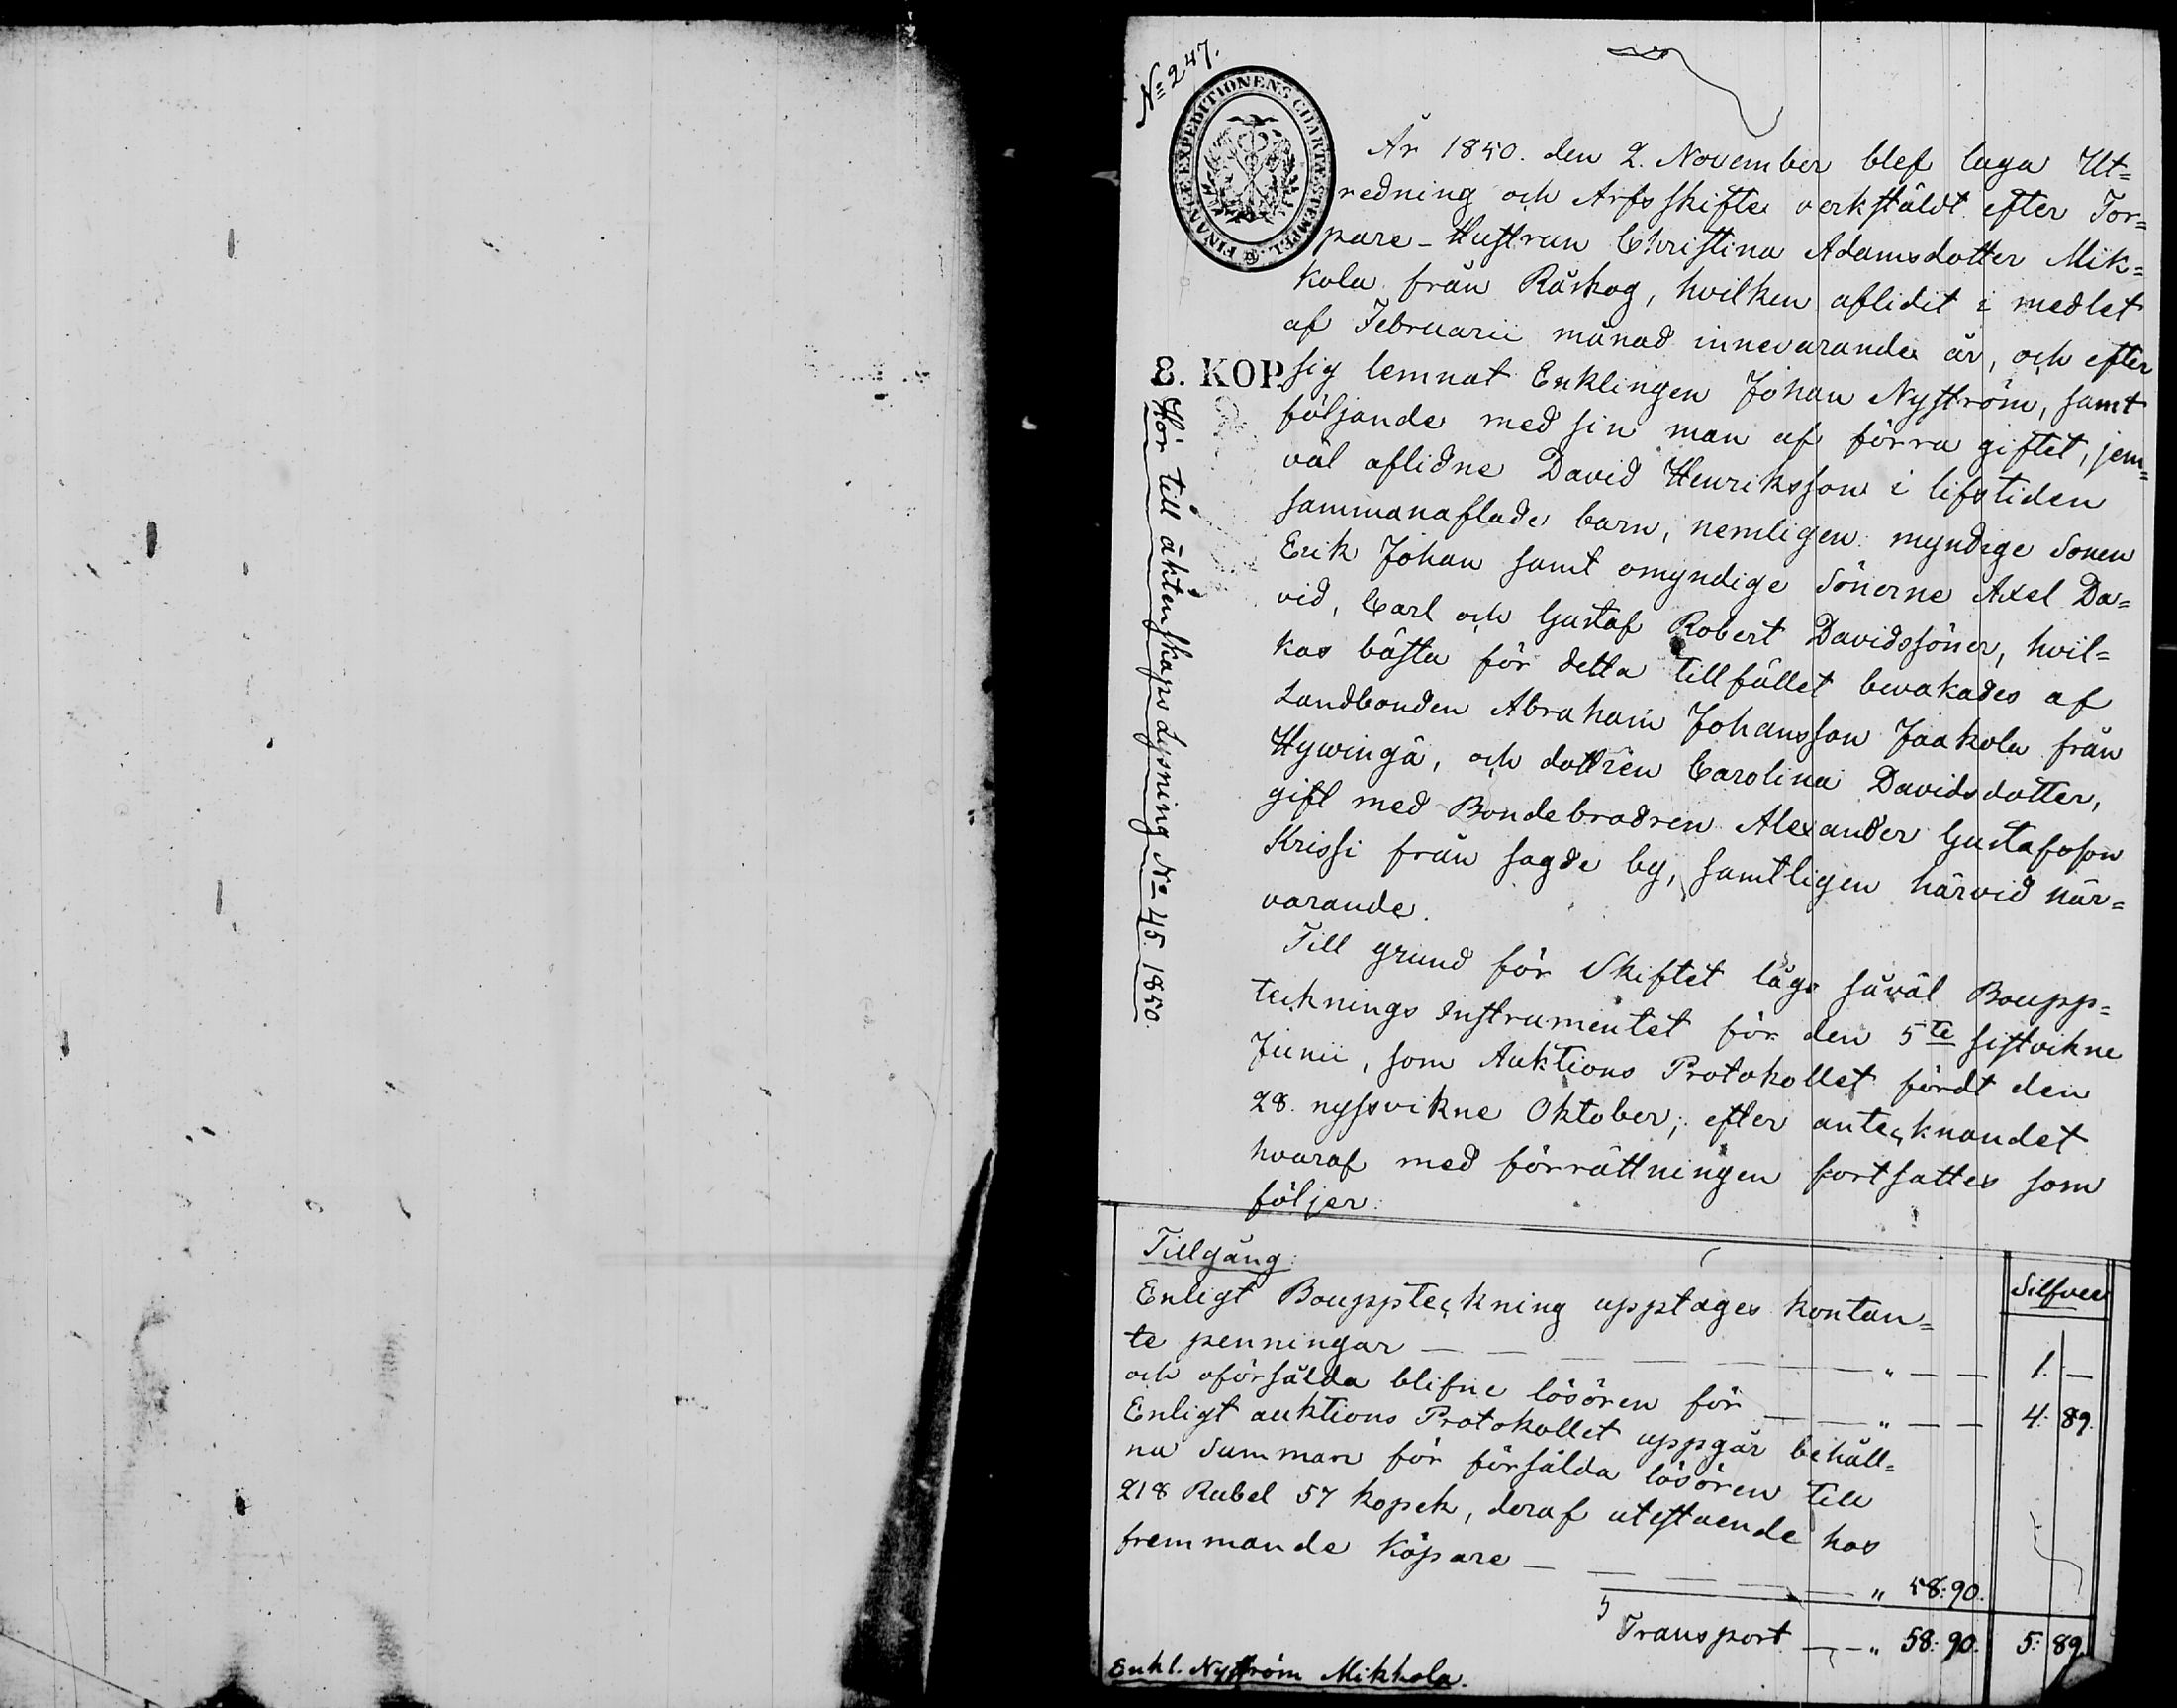 No 247.
FINANCE EXPEDITIONENS CHARTÆ STEMPEL.
År 1850. den 2. November blef laga Ut=
redning och Arfsskifte verkstäldt efter Tor=
pare-Hustrun Christina Adamsdotter Mik=
kola från Råskog, hvilken aflidit i medlet
af Februarii månad innevarande år, och efter
8. KOP
sig lemnat Enklingen Johan Nyström, samt
följande med sin man af förra giftet, jem=
väl aflidne David Henriksson i lifstiden
sammanaflade barn, nemligen: myndige Sonen
Erik Johan samt omyndige Sönerne Axel Da=
vid, Carl och Gustaf Robert Davidssöner, hvil=
kas bästa för detta tillfället bevakades af
Landbonden Abraham Johansson Jaakola från
Hywingä, och dottren Carolina Davidsdotter,
gift med Bondebrodren Alexander Gustafsson
Krissi från sagde by, samtligen härvid när=
varande.
Till grund för Skiftet låge såväl Boupp=
tecknings Instrumentet för den 5te sistvikne
Junii, som Auktions Protokollet fördt den
28. nyssvikne Oktober; efter antecknandet
hvaraf med förrättningen fortsattes som
följer:
Hör till äktenskaps Lysning No 45. 1850.
Tillgång: Silfver
Enligt Bouppteckning upptages kontan=
te penningar — — — — — — " — — 1. —
och oförsålda blifne lösören för — — " — — 4: 89.
Enligt auktions Protokollet uppgår behåll=
na Summan för försålda lösören till
218 Rubel 57 kopek, deraf utestående hos
fremmande Köpare — — — — — — " 58: 90.
Transport — — " 58: 90. 5: 89.
Enkl. Nyström Mikkola.